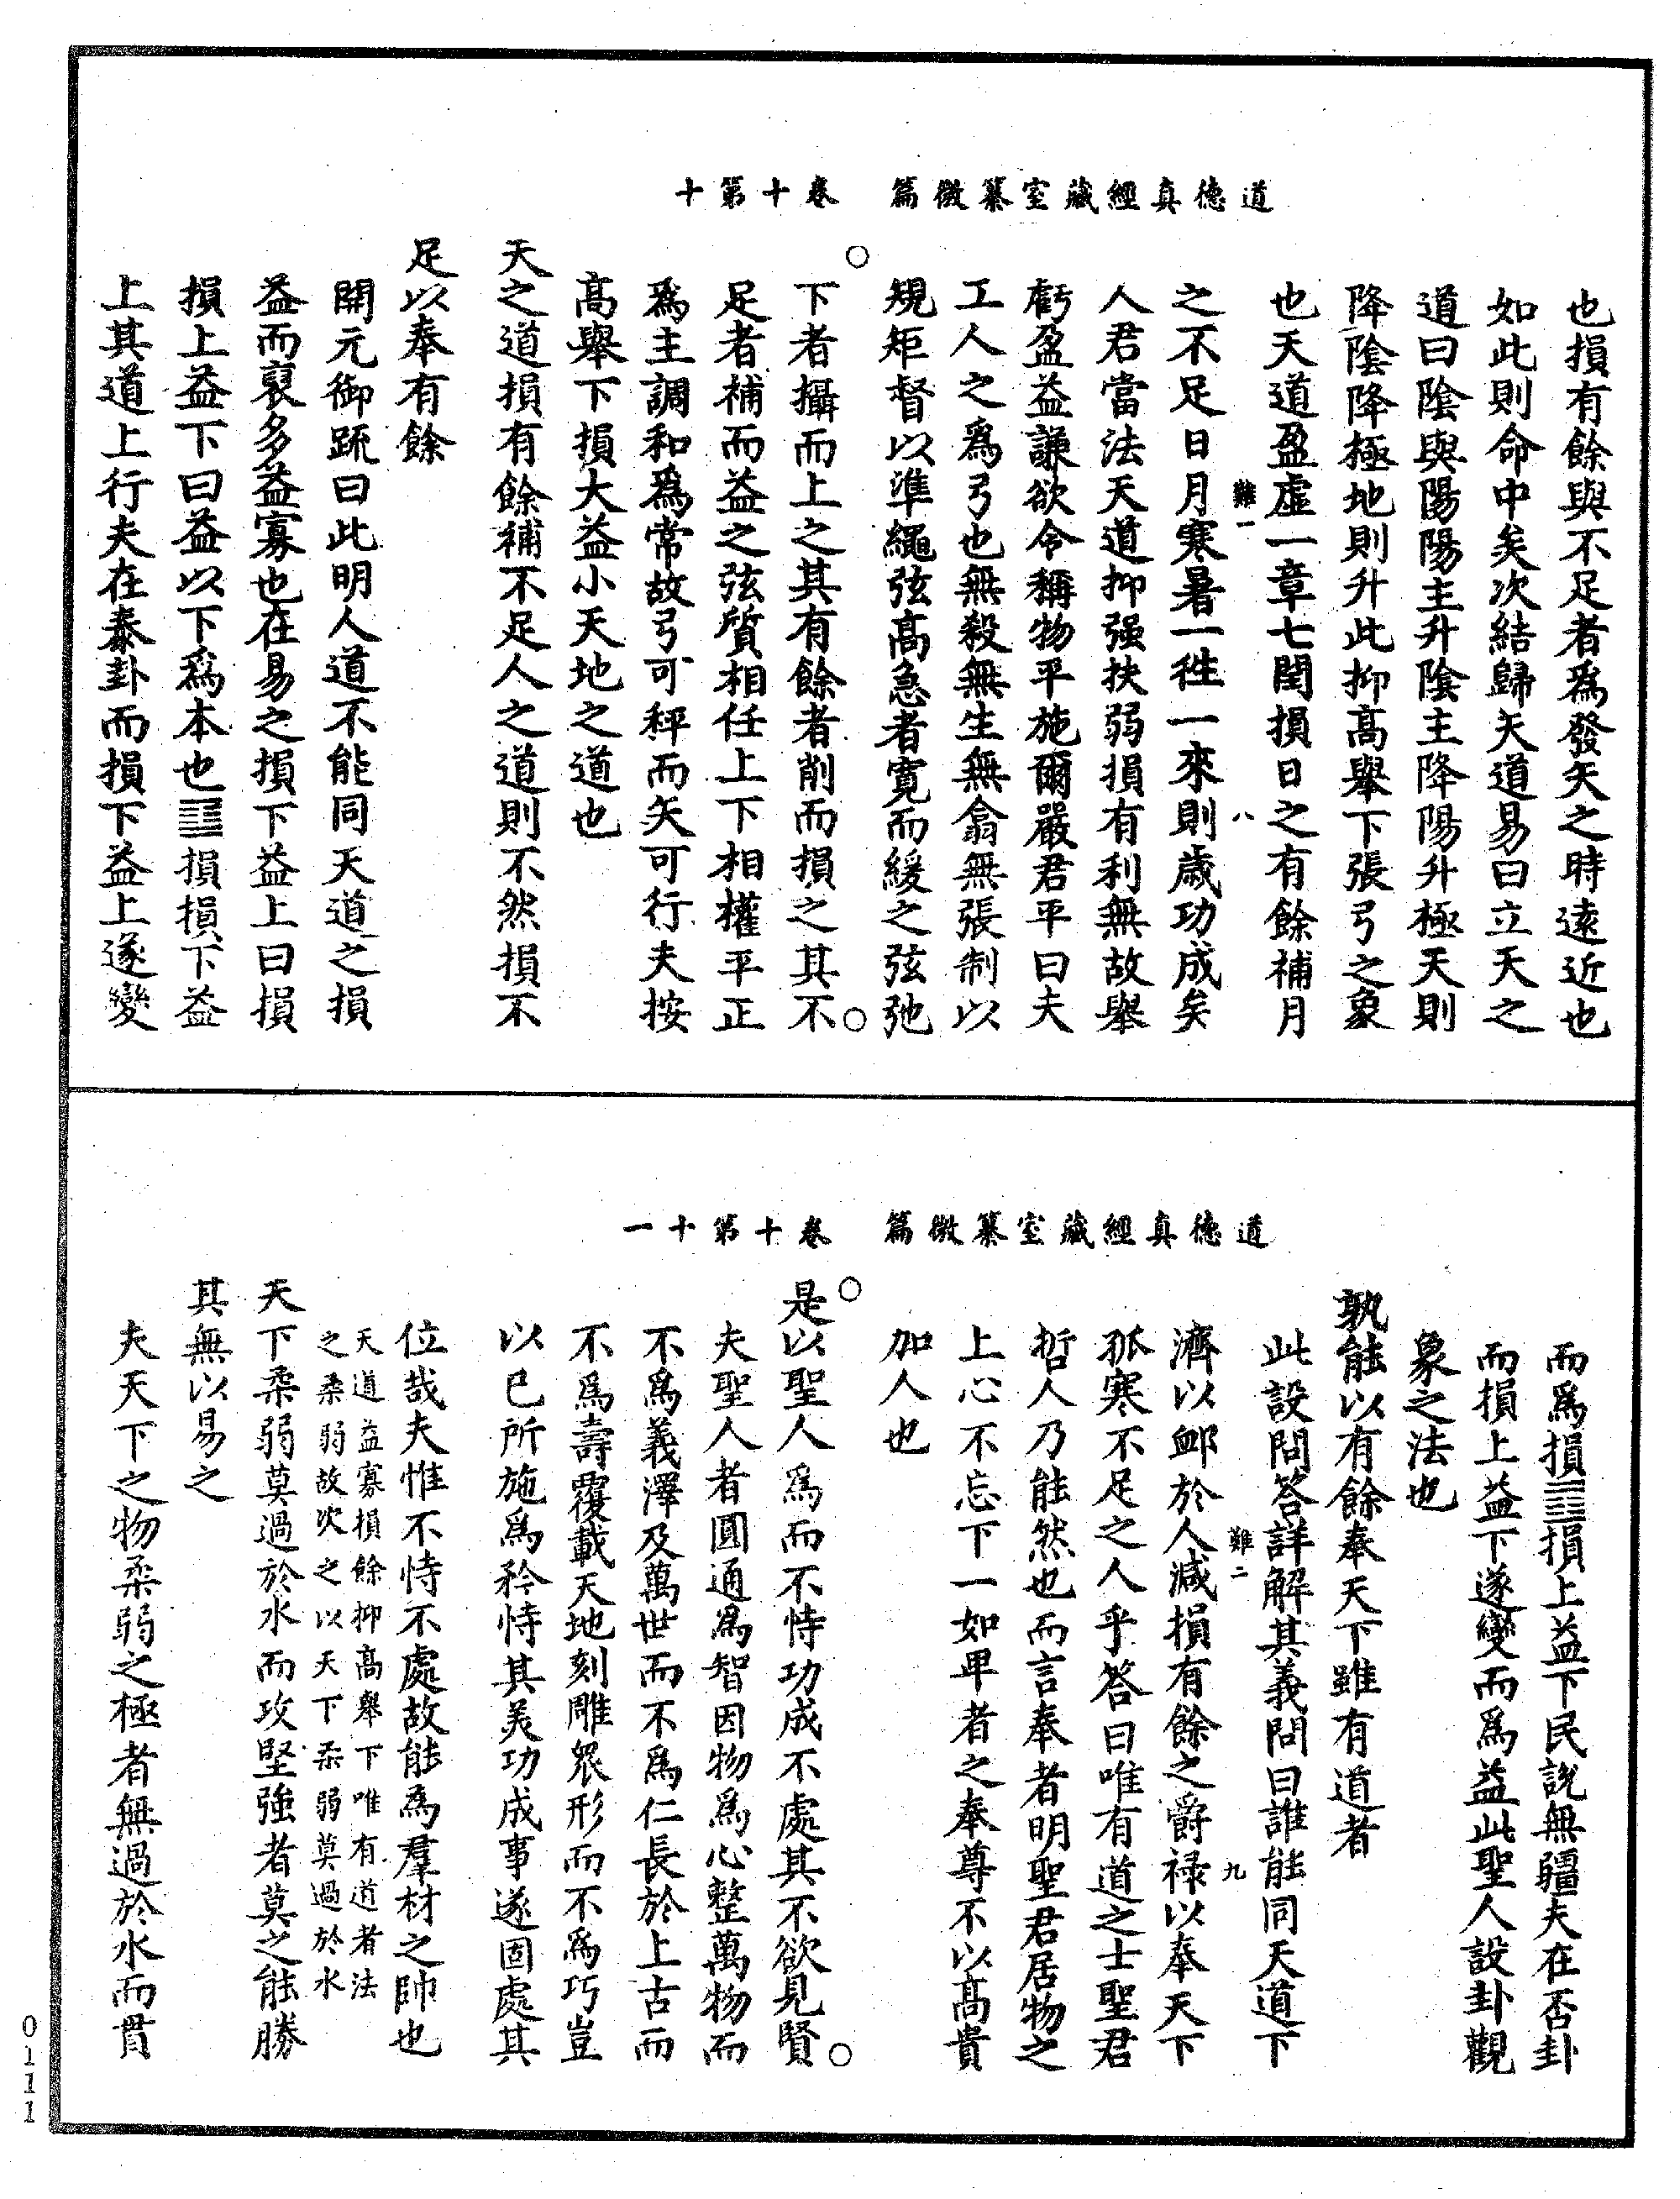 道德真經藏室纂微篇　卷十第十
也損有餘與不足者爲發矢之時遠近也
如此則命中矣次結歸天道易曰立天之
道曰陰與陽陽主升陰主降陽升極天則
降陰降極地則升此抑高舉下張弓之象
也天道盈虛一章七閏損日之有餘補月
難一　八
之不足日月寒暑一徃一來則歲功成矣
人君當法天道抑强扶弱損有利無故舉
虧盈益謙欲令稱物平施爾嚴君平曰夫
工人之爲弓也無殺無生無翕無張制以
規矩督以準繩弦高急者寬而緩之弦弛
○下者攝而上之其有餘者削而損之其不○
足者補而益之弦質相任上下相權平正
爲主調和爲常故弓可秤而矢可行夫按
高舉下損大益小天地之道也
天之道損有餘補不足人之道則不然損不
足以奉有餘
開元御䟽曰此明人道不能同天道之損
益而裒多益寡也在易之損下益上曰損
損上益下曰益以下爲本也䷨損損下益
上其道上行夫在泰卦而損下益上遂變
道德真經藏室纂微篇　卷十第十一
而爲損䷩損上益下民說無疆夫在否卦
而損上益下遂變而爲益此聖人設卦觀
象之法也
孰能以有餘奉天下雖有道者
此設問答詳解其義問曰誰能同天道下
難二　九
濟以卹於人減損有餘之爵祿以奉天下
孤寒不足之人乎答曰唯有道之士聖君
哲人乃能然也而言奉者明聖君居物之
上心不忘下一如卑者之奉尊不以高貴
加人也
○是以聖人爲而不恃功成不處其不欲見賢○
夫聖人者圓通爲智因物爲心整萬物而
不爲義澤及萬世而不爲仁長於上古而
不爲壽覆載天地刻雕眾形而不爲巧豈
以已所施爲矜恃其美功成事遂固處其
位哉夫惟不恃不處故能爲羣材之帥也
天道益寡損餘抑高舉下唯有道者法
之柔弱故次之以天下柔弱莫過於水
天下柔弱莫過於水而攻堅強者莫之能勝
其無以易之
夫天下之物柔弱之極者無過於水而貫
0111